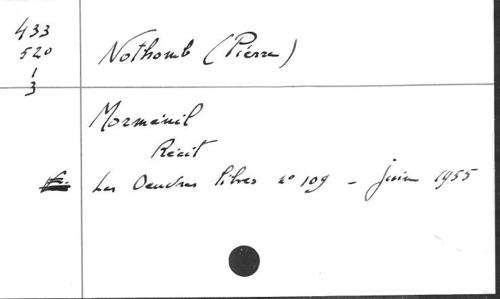 433
520
1
3
Nothomb (Pierre)
Morménil
Récit
Les Oeuvres libres n° 109 - juin 1955